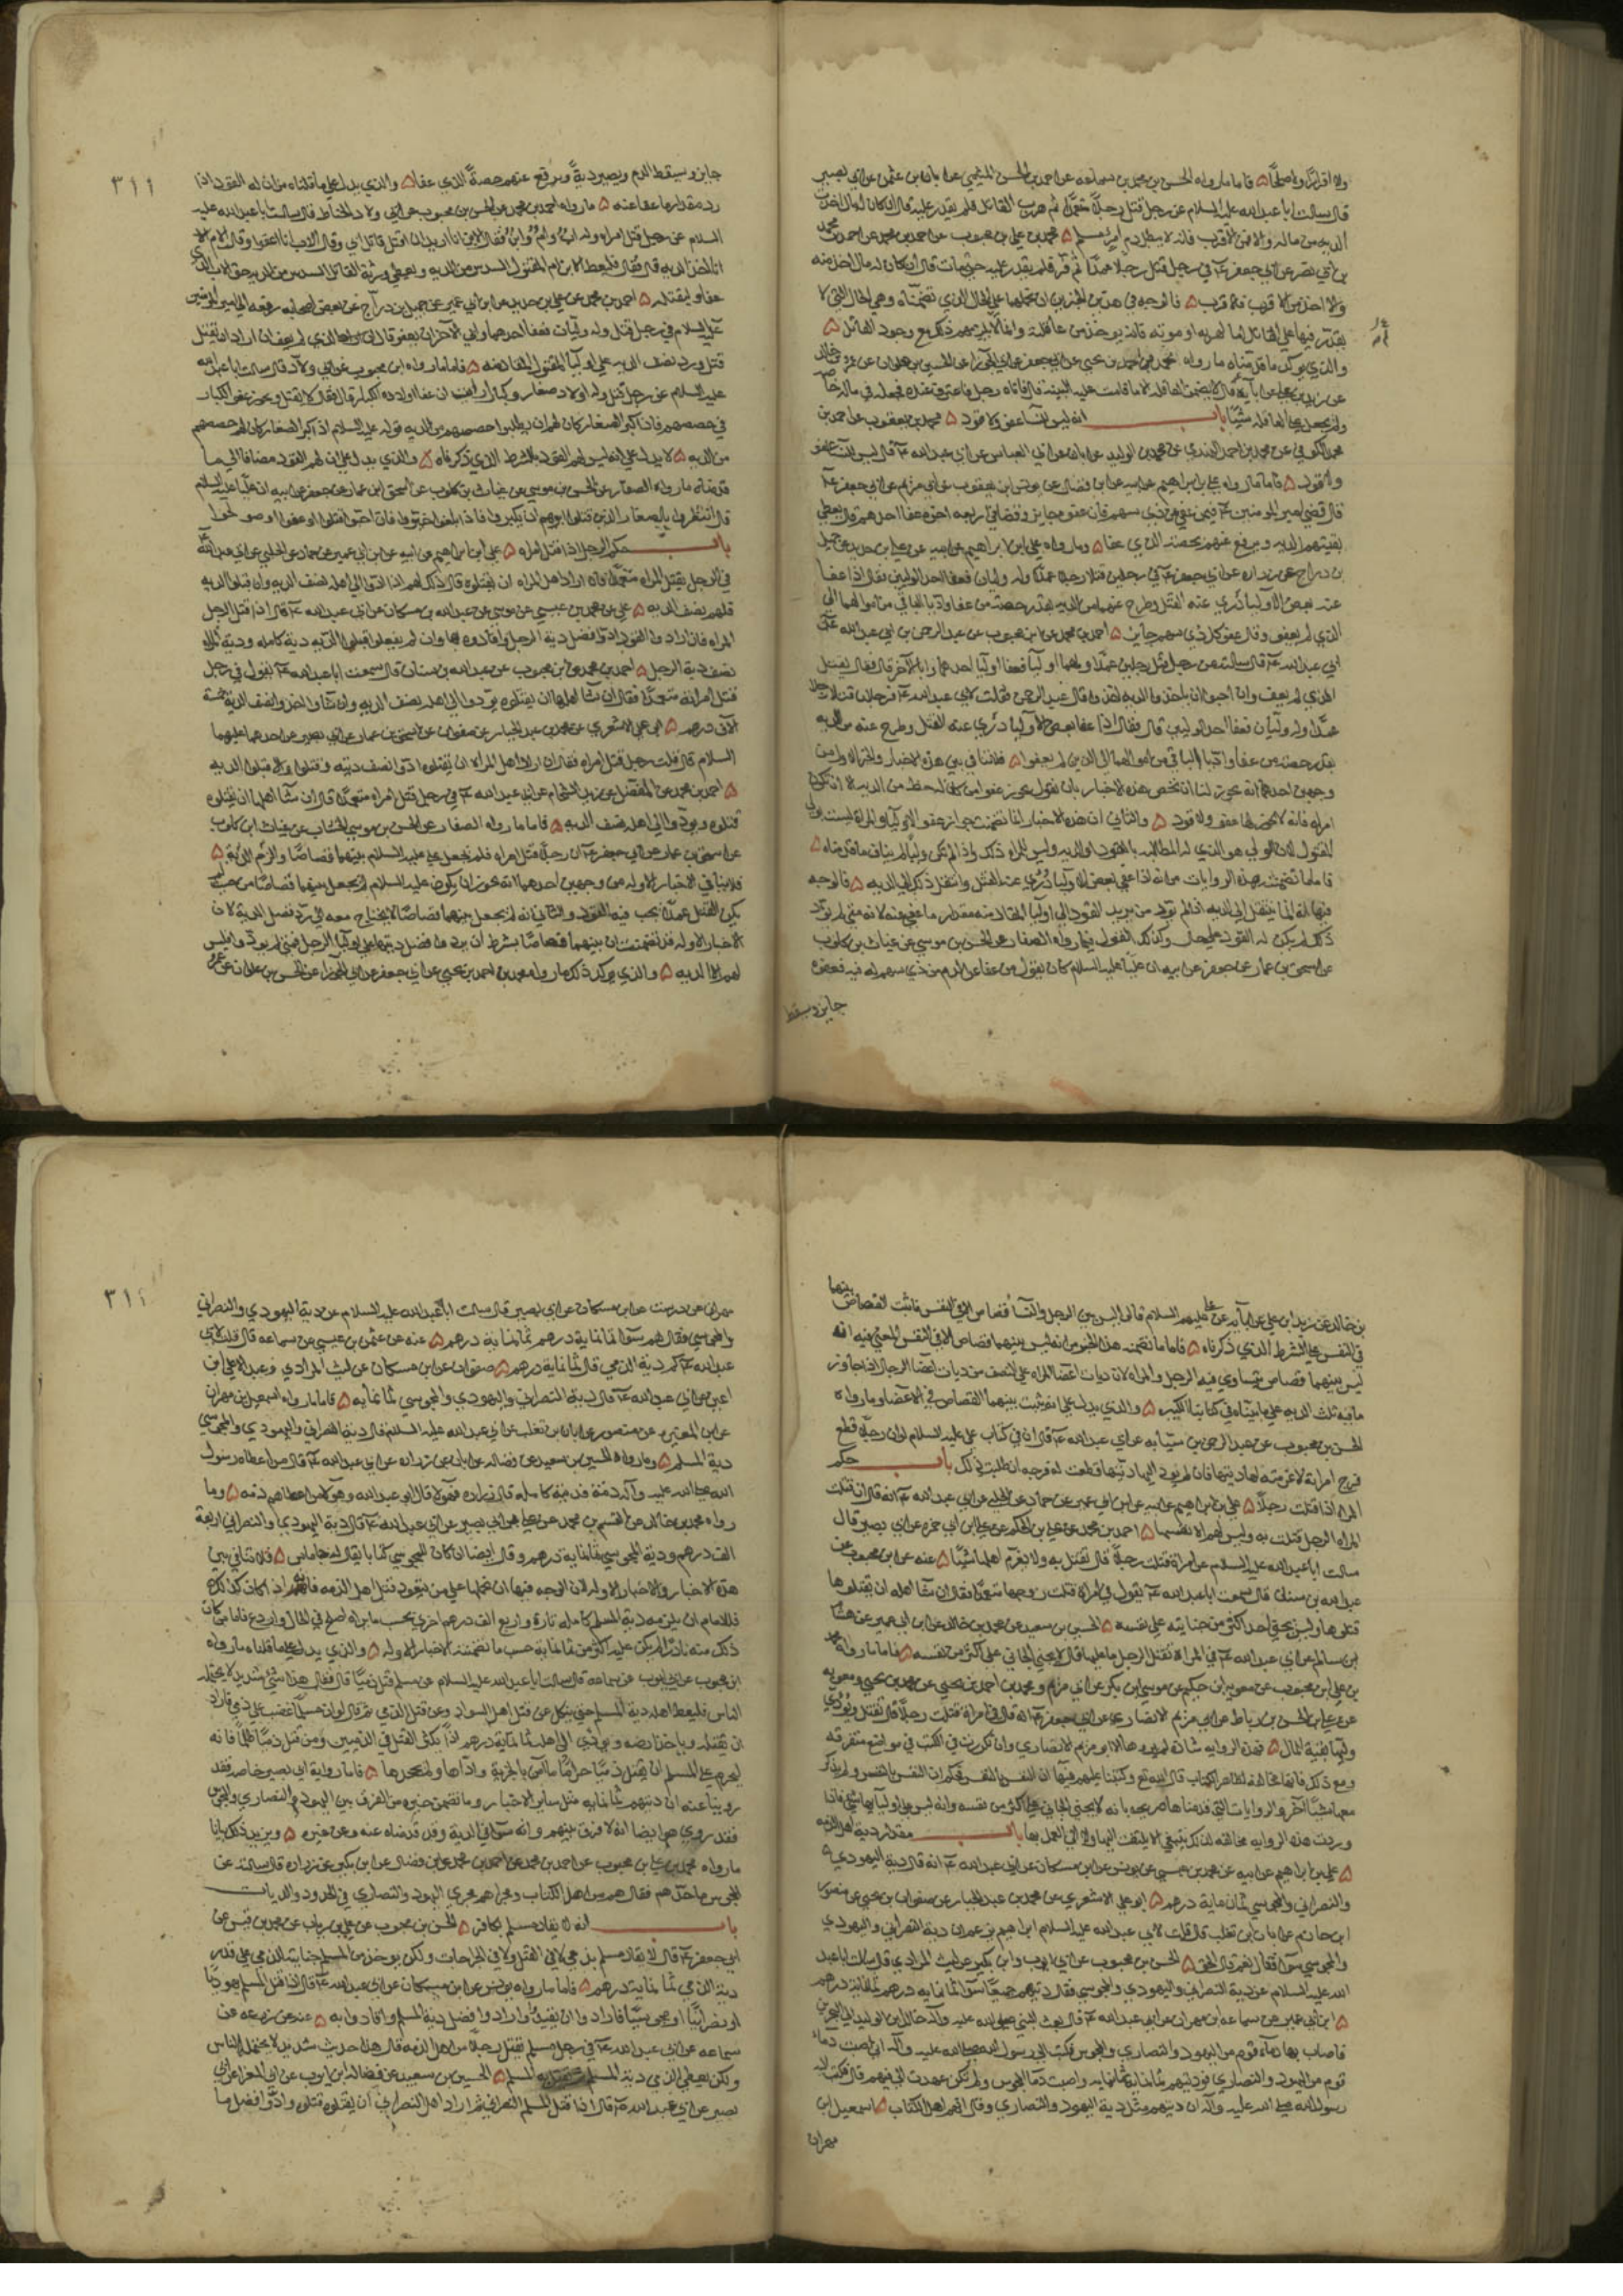 ولا اقرارًا ولا صلحًا ۵ فاما ما رواه الحسن بن محمد بن سماعه عن احمد بن الحسن الميثمي عن ابان بن عثمن عن ابي بصير
قال سالت ابا عبد الله عليه السلام عن رجل قتل رجلًا متعمدًا ثم هرب القاتل فلم يقدر عليه قال ان كان له مال اخذت
الديه من ماله والا فمن الاقرب فالاقرب فانه لا يبطل دم امرئ مسلم ۵ محمد بن علي بن محبوب عن احمد بن محمد عن احمد بن محمد
بن ابي نصر عن ابي جعفر ع في رجل قتل رجلًا عمدًا ثم فر فلم يقدر عليه حتى مات قال ان كان له مال اخذ منه
والا اخذ من الاقرب فالاقرب ۵ فالوجه في هذين الخبرين ان نحملهما علي الحال الذي تضمناه وهي الحال التي لا
يقدر فيها علي القاتل اما لهربه او موته فانه يوخذ من عاقلته وانما لا يلزمهم ذلك مع وجود القاتل ۵
والذي يوكد ما قدمناه ما رواه محمد بن احمد بن يحيي عن ابي جعفر عن ابي الجوزا عن الحسين بن علوان عن عمرو بن خالد
عن زيد بن علي عن ابايه ع قال لا يضمن العاقله الا ما قامت عليه البينه قال فاتاه رجل فاعترف عنده فجعله في ماله خاصه
ولم يجعل علي العاقله شيئًا باب انه ليس للنسا عفو ولا قود ۵ محمد بن يعقوب عن احمد بن
محمد الكوفي عن محمد بن احمد النهدي عن محمد بن الوليد عن ابان عن ابي العباس عن ابي عبد الله ع قال ليس للنسا عفو
ولا قود ۵ فاما ما رواه علي بن ابراهيم عن ابيه عن ابن فضال عن يونس بن يعقوب عن ابي مريم عن ابي جعفر ع
قال قضي امير المومنين ع فيمن عفي من ذي سهم فان عفوه جايز وقضا في اربعه اخوه عفا احدهم قال يعطي
بقيتهم الديه ويرفع عنهم بحصته الذي عفا ۵ وما رواه علي بن ابراهيم عن ابيه عن علي بن حديد عن جميل
بن دراج عن زراره عن ابي جعفر ع في رجلين قتلا رجلا عمدًا وله وليان فعفا احد الوليين فقال اذا عفا
عنه بعض الاوليا دُرِي عنه القتل وطرح عنهما من الديه بقدر حصه من عفا واديا الباقي من اموالهما الي
الذي لم يعفو وقال عفو كل ذي سهم جايز ۵ احمد بن محمد عن ابن محبوب عن عبد الرحمن عن ابي عبد الله ع
ابي عبد الله ع قال سالته عن رجل قتل رجلين عمدًا ولهما اوليا فعفا اوليا احدهما وابا الاخر قال فقال يقتل
الذي لم يعف وان احبوا ان ياخذوا الديه اخذوا قال عبد الرحمن فقلت لابي عبد الله ع فرجلان قتلا رجلا
عمدًا وله وليان فعفا احد الوليين قال فقال اذا عفا بعض الاوليا دُرِي عنه القتل وطرح عنه من الديه
بقدر حصه من عفا واديا الباقي من اموالهما الي الذين لم يعفوا ۵ فلا تنافي بين هذه الاخبار والخبر الاول من
وجهين احدهما انه يجوز لنا ان نخص هذه الاخبار بان نقول يجوز عفو من كان له حظ من الديه الا ان تكون
امراه فانه لا يجوز لها عفو ولا قود ۵ والثاني ان هذه الاخبار انما تضمنت جواز عفو الاوليا والمراه ليست ولي
المقتول لان الولي هو الذي له المطالبه بالقود او الديه وليس للمراه ذلك واذا لم تكن وليًا لم يناف ما قدمناه ۵
فاما ما تضمنت هذه الروايات من انه اذا عفي بعض الاوليا دُرِي عنه القتل وانتقل ذلك الي الديه ۵ فالوجه
فيها انه انما ينتقل الي الديه اذا لم يود من يريد القود الي اوليا المقاد منه مقدار ما عفي عنه لانه متي لم يود
ذلك لم يكن له القود علي حال وكذلك القول فيما رواه الصفار عن الحسن بن موسي عن غياث بن كلوب
عن اسحق بن عمار عن جعفر عن ابيه ان عليًا عليه السلام كان يقول من عفا عن الدم من ذي سهم له فيه فعفوه
جايز وسقط
٣١١
جايز وسيقط الدم ويصير دية ويرفع عنهم حصة الذي عفا ۵ والذي يدل علي ما قلناه من ان له القود اذا
رد مقدار ما عفا عنه ۵ ما رواه احمد بن محمد عن الحسن بن محبوب عن ابي ولاد الحناط قال سالت ابا عبد الله عليه
السلام عن رجل قتل امراه وله اب وام وابن فقال الابن انا اريد ان اقتل قاتل ابي وقال الاب انا اعفوا وقال الام
انا اخذ الديه قال فقال فليعط الابن ام المقتول السدس من الديه ويعطي ورثة القاتل السدس من الديه حق الاب الذي
عفا وليقتله ۵ احمد بن محمد عن علي بن حديد عن ابن ابي عمير عن جميل بن دراج عن بعض اصحابه رفعه الي امير المومنين
عليه السلام في رجل قتل وله وليان فعفا احدهما وابي الاخر ان يعفو قال ان الذي لم يعف ان اراد ان يقتل
قتل ورد نصف الديه علي اوليا المقتول المقاد منه ۵ فاما ما رواه ابن محبوب عن ابي ولاد قال سالت ابا عبد الله
عليه السلام عن رجل قتل وله اولاد صغار وكبار ارايت ان عفا اولاده الكبار قال فقال لا يقتل ويجوز عفو الكبار
في حصصهم فاذا كبر الصغار كان لهم ان يطلبوا حصصهم من الديه قوله عليه السلام اذا كبر الصغار كان لهم حصصهم
من الديه ۵ لا يدل علي انه ليس لهم القود بالشرط الذي ذكرناه ۵ والذي يدل علي ان لهم القود مضافا الي ما
قدمناه ما رواه الصفار عن الحسن بن موسي عن غياث بن كلوب عن اسحق ابن عمار عن جعفر عن ابيه ان عليا عليه السلام
قال انتظروا بالصغار الذين قتل ابوهم ان يكبروا فاذا بلغوا خيروا فان احبوا قتلوا او عفوا او صولحوا
باب حكم الرجل اذا قتل امراه ۵ علي ابن ابراهيم عن ابيه عن ابن ابي عمير عن حماد عن الحلبي عن ابي عبد الله ع
في الرجل يقتل المراه متعمدًا فاراد اهل المراه ان يقتلوه قال ذلك لهم اذا ادوا الي اهله نصف الديه وان قبلوا الديه
فلهم نصف الديه ۵ علي عن محمد بن عيسي عن يونس عن عبد الله بن مسكان عن ابي عبد الله ع قال اذا قتل الرجل
المراه فان ارادوا القود ادوا فضل دية الرجل واقادوه بها وان لم يفعلوا قبلوا الديه دية كامله ودية المراه
نصف دية الرجل ۵ احمد بن محمد عن ابن محبوب عن عبد الله بن سنان قال سمعت ابا عبد الله ع يقول في رجل
قتل امراته متعمدًا فقال ان شا اهلها ان يقتلوه يودوا الي اهله نصف الديه وان شاوا اخذوا نصف الديه خمسة
الاف درهم ۵ ابو علي الاشعري عن محمد بن عبد الجبار عن صفوان عن اسحق بن عمار عن ابي بصير عن احدهما عليهما
السلام قال قلت رجل قتل امراه فقال ان اراد اهل المراه ان يقتلوه ادوا نصف ديته وقتلوه والا قبلوا الديه
۵ احمد بن محمد عن المفضل عن زيد الشحام عن ابي عبد الله ع في رجل قتل امراه متعمدًا قال ان شا اهلها ان يقتلوه
قتلوه ويودوا الي اهله نصف الديه ۵ فاما ما رواه الصفار عن الحسن بن موسي الخشاب عن غياث ابن كلوب
عن اسحق بن عمار عن ابي جعفر ع ان رجلا قتل امراه فلم يجعل علي عليه السلام بينهما قصاصًا والزم الديه ۵
فلا ينافي الاخبار الاوله من وجهين احدهما انه يجوز ان يكون عليه السلام لم يجعل بينهما قصاصًا من حيث لم
يكن القتل عمدًا يجب فيه القود والثاني انه لم يجعل بينهما قصاصًا لا يحتاج معه الي رد فضل الديه لان
الاخبار الاوله قد تضمنت ان بينهما قصاصًا بشرط ان يرد ما فضل ديتها علي اوليا الرجل فمتي لم يردوا فليس
لهم الا الديه ۵ والذي يوكد ذلك ما رواه محمد بن احمد بن يحيي عن ابي جعفر عن ابي الجوزا عن الحسين بن علوان عن عمرو
بن خالد عن زيد ابن علي عن ابايه عن علي عليهم السلام قال ليس بين الرجل والنسا قصاص الا في النفس فاثبت القصاص بينهما
في النفس علي الشرط الذي ذكرناه ۵ فاما ما تضمنه هذا الخبر من انه ليس بينهما قصاص الا في النفس المعني فيه انه
ليس بينهما قصاص يتساوي فيه الرجل والمراه لان ديات اعضا المراه علي النصف من ديات اعضا الرجال اذا جاوز
ما فيه ثلث الديه علي ما بيناه في كتابنا الكبير ۵ والذي يدل علي انه يثبت بينهما القصاص في الاعضا وما رواه
الحسن بن محبوب عن عبد الرحمن بن سيابه عن ابي عبد الله ع قال ان في كتاب علي عليه السلام لو ان رجلًا قطع
فرج امراته لاغرمته لها ديتها فان لم يود اليها ديتها قطعت له فرجه ان طلبت ذلك باب حكم
المراه اذا قتلت رجلا ۵ علي بن ابراهيم عن ابيه عن ابن ابي عمير عن حماد عن الحلبي عن ابي عبد الله ع انه قال ان قتلت
المراه الرجل قتلت به وليس لهم الا نفسها ۵ احمد بن محمد عن علي بن الحكم عن علي ابن ابي حمزه عن ابي بصير قال
سالت ابا عبد الله عليه السلام عن امراة قتلت رجلا قال تقتل به ولا يغرم اهلها شيئًا ۵ عنه عن ابن محبوب عن
عبد الله بن سنان قال سمعت ابا عبد الله ع يقول في امراة قتلت زوجها متعمدًا فقال ان شا اهله ان يقتلوها
قتلوها وليس يجني احد اكثر من جنايته علي نفسه ۵ الحسين بن سعيد عن محمد بن خالد عن ابن ابي عمير عن هشام
بن سالم عن ابي عبد الله ع في المراه تقتل الرجل ما عليها قال لا يجني الجاني علي اكثر من نفسه ۵ فاما ما رواه محمد
بن علي ابن محبوب عن معويه ابن حكيم عن موسي ابن بكر عن ابي مريم ومحمد بن احمد بن يحيي عن محمد بن يحيي ومعويه
عن علي بن الحسن بن رباط عن ابي مريم الانصاري عن ابي جعفر ع انه قال في امراة قتلت رجلًا قال تقتل ويودي
وليها بقية المال ۵ فهذه الروايه شاذه لم يروها الا ابو مريم الانصاري وان تكررت في الكتب في مواضع متفرقه
ومع ذلك فانها مخالفه لظاهر الكتاب قال الله تع وكتبنا عليهم فيها ان النفس بالنفس فحكم ان النفس بالنفس ولم يذكر
معها شيئًا اخر والروايات التي قدمناها صريحه بانه لا يجني الجاني علي اكثر من نفسه وانه ليس علي اوليائها شي فاذا
وردت هذه الروايه مخالفه لذلك ينبغي الا يلتفت اليها ولا الي العمل بها باب مقدار دية اهل الذمه
۵ علي بن ابراهيم عن ابيه عن محمد بن عيسي عن يونس عن ابن مسكان عن ابي عبد الله ع انه قال دية اليهودي
والنصراني والمجوسي ثمان ماية درهم ۵ ابو علي الاشعري عن محمد بن عبد الجبار عن صفوان بن يحيي عن منصور
ابن حازم عن ابان بن تغلب قال قلت لابي عبد الله عليه السلام ابراهيم يزعم ان دية النصراني واليهودي
والمجوسي سوا فقال نعم قال الحق ۵ الحسن بن محبوب عن ابي ايوب وابن بكير عن ليث المرادي قال سالت ابا عبد
الله عليه السلام عن دية النصراني واليهودي والمجوسي فقال ديتهم جميعًا سوا ثمانمايه درهم ثمانمايه درهم
۵ ابن ابي عمير عن سماعه ابن مهران عن ابي عبد الله ع قال بعث النبي صلي الله عليه وآله خالد ابن الوليد الي البحرين
فاصاب بها دمآء قوم من اليهود والنصاري والمجوس فكتب الي رسول الله صلي الله عليه وآله اني اصبت دماء
قوم من اليهود والنصاري فوديتهم ثمانمايه ثمانمايه واصبت دما المجوس ولم تكن عهدت الي فيهم قال فكتب اليه
رسول الله صلي الله عليه وآله ان ديتهم مثل دية اليهود والنصاري وقال انهم اهل الكتاب ۵ اسمعيل ابن
مهران
مهران عن درست عن ابن مسكان عن ابي بصير قال سالت ابا عبد الله عليه السلام عن دية اليهودي والنصراني
والمجوسي فقال هم سوا ثمانماية درهم ثمانماية درهم ۵ عنه عن عثمن بن عيسي عن سماعه قال قلت لابي
عبد الله ع كم دية الذمي قال ثمانماية درهم ۵ صفوان عن ابن مسكان عن ليث المرادي وعبد الاعلي ابن
اعين عن ابي عبد الله ع قال دية النصراني واليهودي والمجوسي ثمانمايه ۵ فاما ما رواه اسمعيل بن مهران
عن ابن المغيره عن منصور عن ابان بن تغلب عن ابي عبد الله عليه السلام قال دية النصراني واليهودي والمجوسي
دية المسلم ۵ وما رواه الحسين بن سعيد عن فضاله عن ابان عن زراره عن ابي عبد الله ع قال من اعطاه رسول
الله صلي الله عليه وآله ذمة فديته كامله قال زراره فهولا قال ابو عبد الله وهولا من اعطاهم ذمه ۵ وما
رواه محمد بن خالد عن القسم بن محمد عن علي عن ابي بصير عن ابي عبد الله ع قال دية اليهودي والنصراني اربعة
الف درهم ودية المجوسي ثمانماية درهم وقال ايضا ان كان للمجوسي كتابا يقال له جاماس ۵ فلا تنافي بين
هذه الاخبار والاخبار الاوله لان الوجه فيها ان نحملها علي من يتعود قتل اهل الذمه فانه اذا كان كذلك
فللامام ان يلزمه دية المسلم كامله تارة واربع الف درهم اخري بحسب ما يراه اصلح في الحال واردع فاما من كان
ذلك منه نادرًا لم يكن عليه اكثر من ثمانماية حسب ما تضمنته الاخبار الاوله ۵ والذي يدل علي ما قلناه ما رواه
ابن محبوب عن ابي ايوب عن سماعه قال سالت ابا عبد الله عليه السلام عن مسلم قتل ذميًا قال فقال هذا شي شديد لا يحتمله
الناس فليعط اهله دية المسلم حتي ينكل عن قتل اهل السواد وعن قتل الذمي ثم قال لو ان مسلمًا غضب علي ذمي فاراد
ان يقتله وياخذ ارضه ويودي الي اهله ثمانماية درهم اذًا يكثر القتل في الذميين ومن قتل ذميًا ظلمًا فانه
ليحرم علي المسلم ان يقتل ذميًا حرامًا ما امن بالجزية واداها ولم يجحدها ۵ فاما رواية ابي بصير خاصه فقد
روينا عنه ان ديتهم ثمانمايه مثل ساير الاخبار وما تضمن خبره من الفرق بين اليهودي والنصاري والمجوس
فقد روي هو ايضا انه لا فرق بينهم وانه سوا في الدية وقد قدمناه عنه وعن غيره ۵ ويزيد ذلك بيانا
ما رواه محمد بن علي بن محبوب عن احمد بن محمد عن ابن فضال عن ابن بكير عن زراره قال سالته عن
المجوس ما حدهم فقال هم من اهل الكتاب ومجراهم مجري اليهود والنصاري في الحدود والديات
باب انه لا يقاد مسلم بكافر ۵ الحسن بن محبوب عن علي بن رياب عن محمد بن قيس عن
ابي جعفر ع قال لا يقاد مسلم بذمي لا في القتل ولا في الجراحات ولكن يوخذ من المسلم جنايته للذمي علي قدر
دية الذمي ثمانماية درهم ۵ فاما ما رواه يونس عن ابن مسكان عن ابي عبد الله ع قال اذا قتل المسلم يهوديًا
او نصرانيًا او مجوسيًا فارادوا ان يقيدوا ارادوا فضل دية المسلم واقادوا به ۵ عنه عن زرعه عن
سماعه عن ابي عبد الله ع في رجل مسلم يقتل رجلًا من اهل الذمه قال هذا حديث شديد لا يحتمل الناس
ولكن يعطي الذمي دية المسلم ثم يقتل به المسلم ۵ الحسين بن سعيد عن فضاله ابن ايوب عن ابي المغرا عن ابي
بصير عن ابي عبد الله ع قال اذا قتل المسلم النصراني فاراد اهل النصراني ان يقتلوه قتلوه وادوا فضل ما